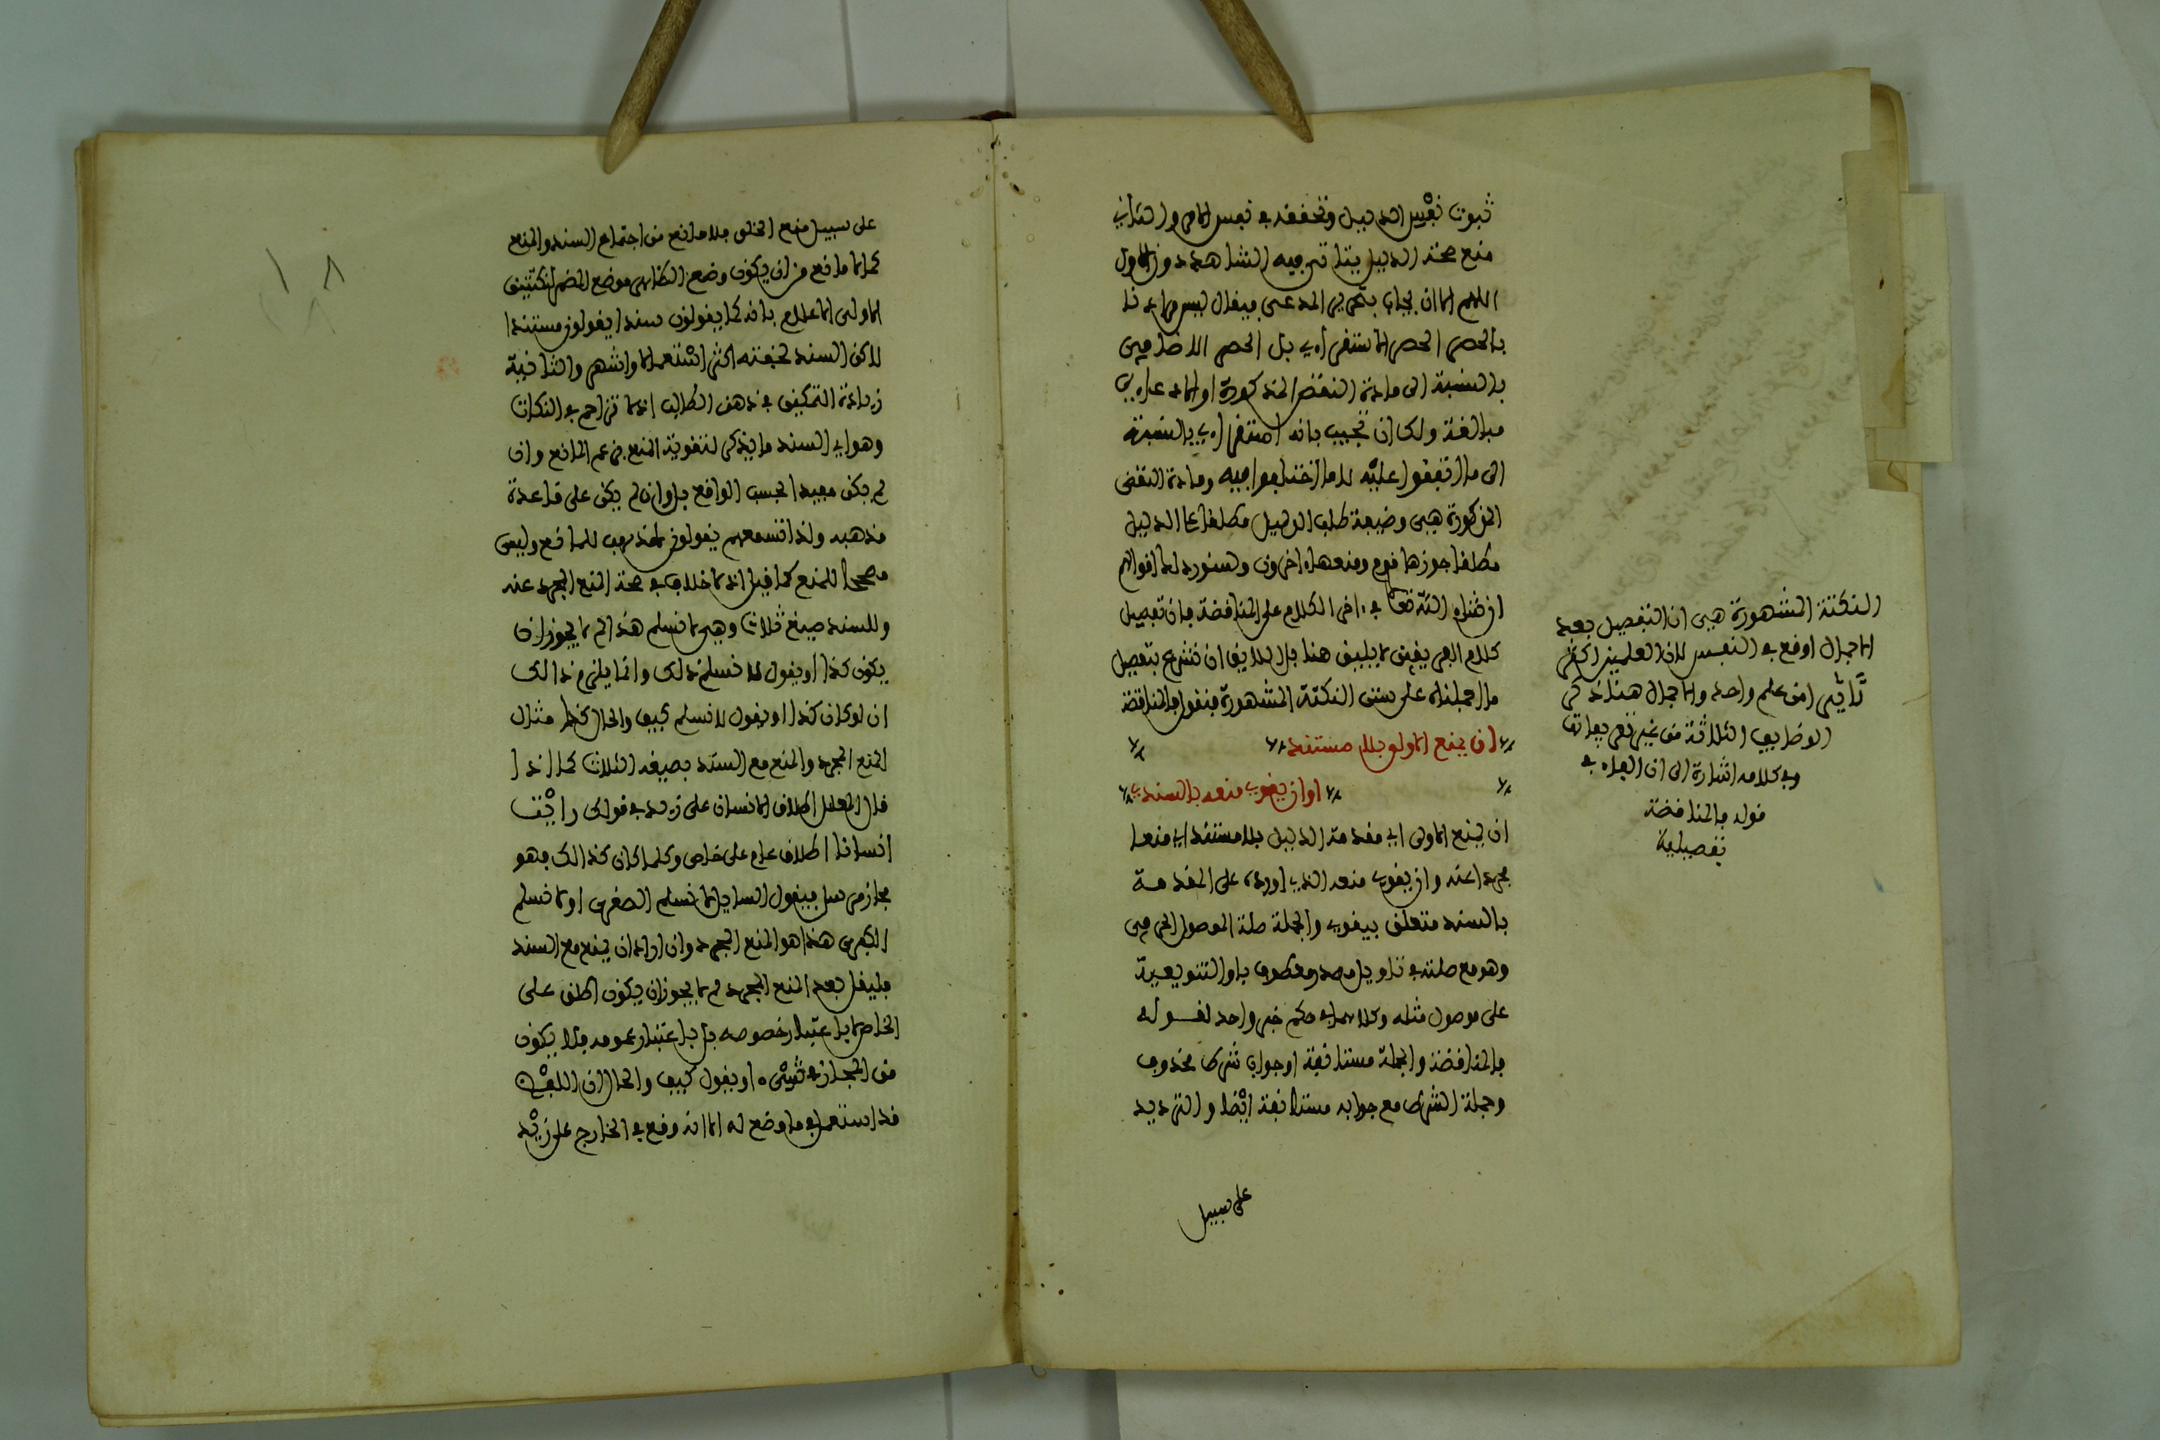 ثبوت نفس الدليل وتحققه في نفس الامر والثاني
منع صحة الدليل يتاتى فيه الشاهد دون الاول
اللهم الا ان يجاب بتحرير المدعى فيقال ليس مرادنا
بالحصر الحصر الاستقراءي بل الحصر الاضافي
بالنسبة الى مادة النقض المذكورة او الادعاءي
مبالغة ولك ان تجيب بانه استقراءي بالنسبة
الى ما اتفقوا عليه لا ما اختلفوا فيه ومادة النقض
المذكورة هي وضيعة طلب الدليل مطلقا على الدليل
مطلقا جوزها قوم ومنعها اخرون وسنورد لك اقوالهم
ان شاء الله تعالى في اخر الكلام على المناقضة فان تفصيل
كلام الفريقين لا يليق هنا بل اللايق ان نشرع بتفصيل
ما اجملناه على سنن النكتة المشهورة فنقول بالمناقضة
ان يمنع الاولى بلا مستند
او ان يقوي منعه بالسند
ان يمنع الاولى اي مقدمة الدليل بلا مستند اي منعا
مجردا عنه وان يقوي منعه الذي اورده على المقدمة
بالسند متعلق بيقوي والجملة صلة الموصول الحرفي
وهو مع صلته في تاويل مصدر معطوف باو التنويعية
على موصول مثله وكلاهما في حكم خبر واحد لقوله
فالمناقضة والجملة مستانفة او جواب شرط محذوف
وجملة الشرط مع جوابه مستانفة ايضا والترديد
على سبيل
النكتة المشهورة هي ان التفصيل بعد
الاجمال اوقع في النفس لان العلمين اكثر
تاثيرا من علم واحد والاجمال هنا ذكر
الوظايف الثلاثة من غير تعريفاتها
وفي كلامه اشارة الى ان الفاء في
قوله فالمناقضة
تفصيلية
١٨
على سبيل منع الخلو فلا مانع من اجتماع السند والمنع
كما لا مانع من ان يكون وضع الظاهر موضع المضمر لنكتتين
الاولى الاعلام بانه كما يقولون سندا يقولون مستندا
لاكن السند لخفته اكثر استعمالا واشهر والثانية
زيادة التمكين في ذهن الطالب اذ لا تزاحم في النكات
وهو اي السند ما يذكر لتقوية المنع بزعم المانع وان
لم يكن مفيدا بحسب الواقع بل وان لم يكن على قاعدة
مذهبه ولذا تسمعهم يقولون لا مذهب للمانع وليس
مصححا للمنع كما قيل اذ لا خلاف في صحة المنع المجرد عنه
وللسند صيغ ثلاث وهي لا نسلم هذا لم لا يجوز ان
يكون كذا او يقول لا نسلم ذلك وانما يلزم ذالك
ان لو كان كذا او يقول لا نسلم كيف والحال كذا مثال
المنع المجرد والمنع مع السند بصيغه الثلاث كما اذا
قال المعلل اطلاق الانسان على زيد في قولك رايت
انسانا اطلاق عام على خاص وكلما كان كذالك فهو
مجاز مرسل فيقول السايل لا نسلم الصغرى او لا نسلم
الكبرى هذا هو المنع المجرد وان اراد ان يمنع مع السند
فليقل بعد المنع المجرد لم لا يجوز ان يكون اطلق على
الخاص لا باعتبار خصوصه بل باعتبار عمومه فلا يكون
من المجاز في شيء او يقول كيف والحال ان اللفظ
قد استعمل فيما وضع له الا انه وقع في الخارج على زيد